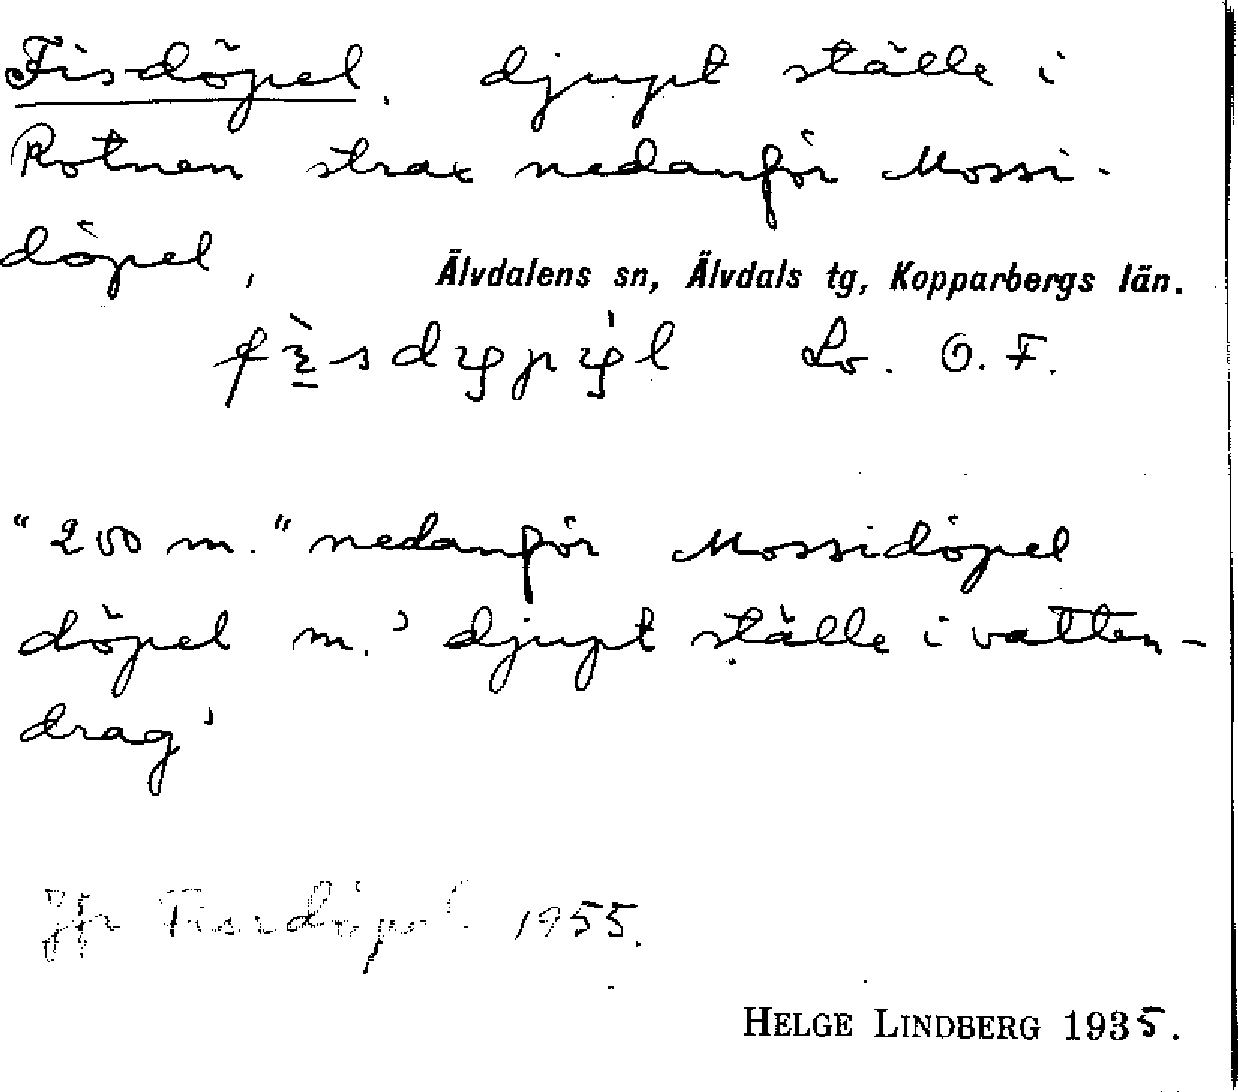 Fisdöpel, djupt ställe i
Rotnen strax nedanför Mossi-
döpel,
Älvdalens sn, Älvdals tg, Kopparbergs län.
Lo. O. F.
"200 m." nedanför Mossidöpel
döpel m. 'djupt ställe i vatten-
drag'
Jfr Fisrdöpel 1955.
HELGE LINDBERG 1935.